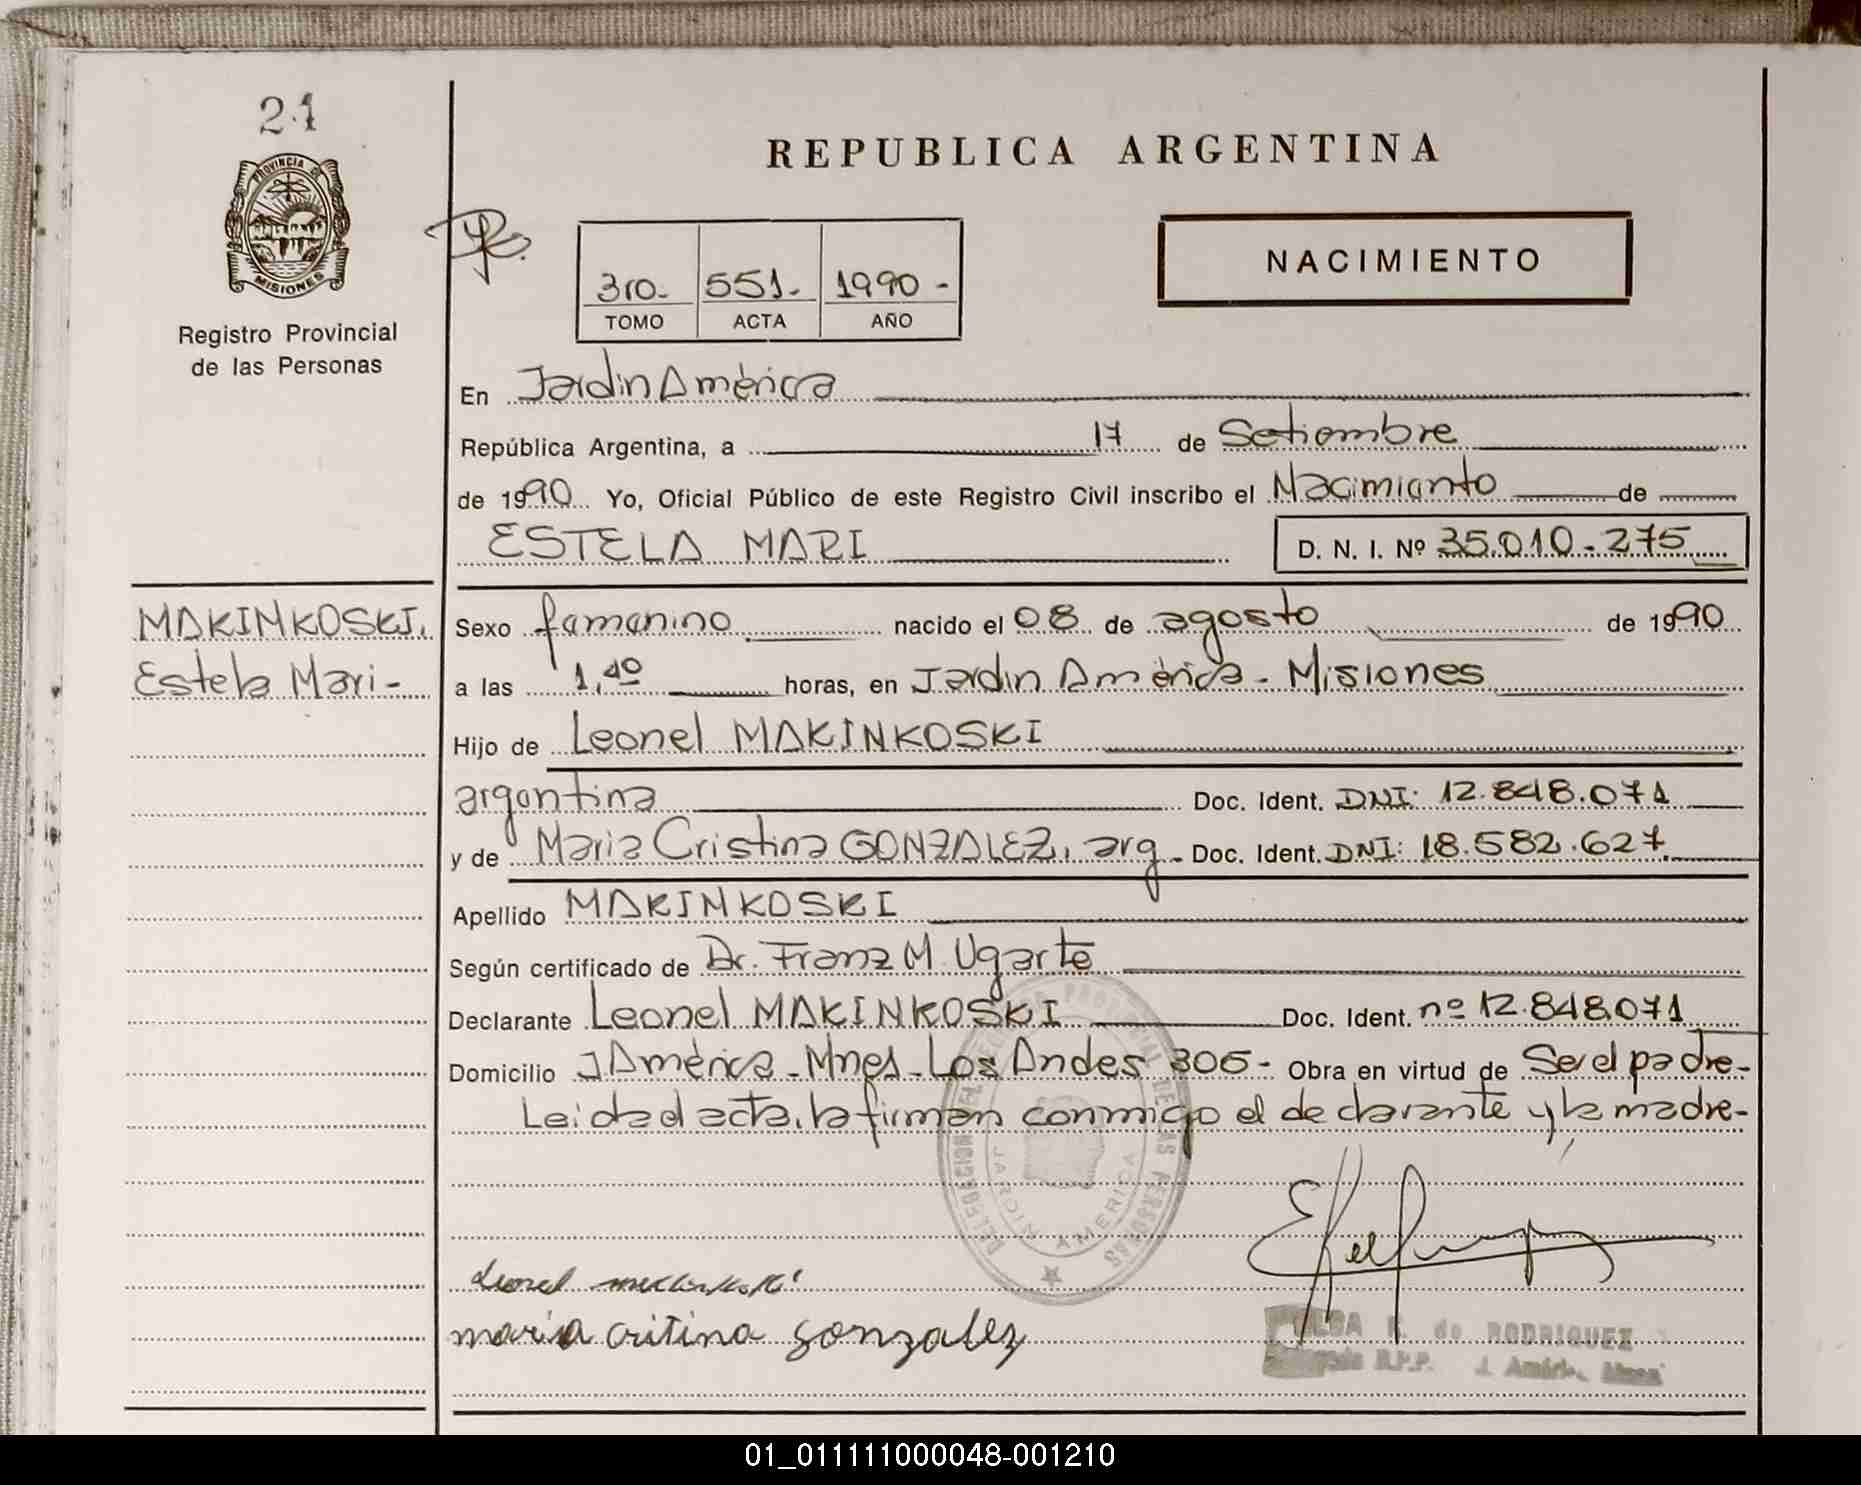 21
PROVINCIA DE
MISIONES
Registro Provincial
de las Personas
REPUBLICA ARGENTINA
NACIMIENTO
3ro- 551- 1990-
TOMO ACTA AÑO
En Jardin América
República Argentina, a 17 de Setiembre
de 1990 Yo, Oficial Público de este Registro Civil inscribo el Nacimiento de
ESTELA MARI D. N. I. Nº 35.010-275
MAKINKOSKI,
Estela Mari-
Sexo femenino nacido el 08 de agosto de 1990
a las 1,40 horas, en Jardin América - Misiones
Hijo de Leonel MAKINKOSKI
argentina Doc. Ident. DNI: 12.848.071
y de Maria Cristina GONZALEZ, arg - Doc. Ident. DNI: 18.582.627
Apellido MAKINKOSKI
Según certificado de Dr. Franz M. Ugarte
Declarante Leonel MAKINKOSKI Doc. Ident. nº 12.848.071
Domicilio J América - Mnes - Los Andes 306 - Obra en virtud de Ser el padre-
Leida el acta, la firman conmigo el declarante y la madre-
JARDIN AMERICA
Leonel
maria critina gonzalez
K. de RODRIGUEZ
R.P.P. J. Améric.
01_011111000048-001210